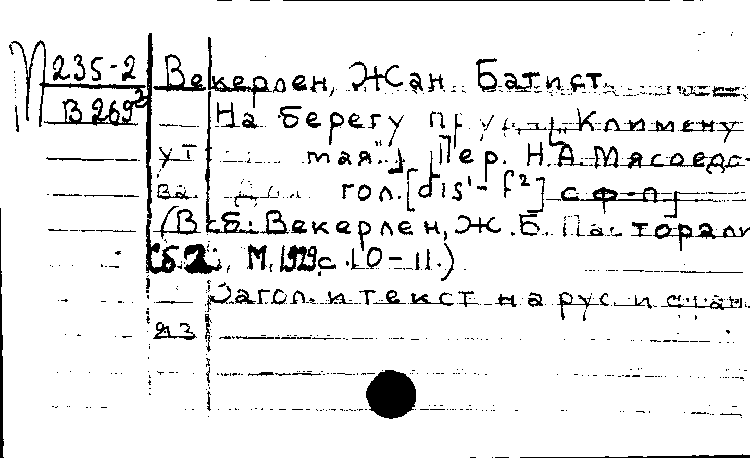 235-2 Векерлен, Жан Батист.
В269² На берегу пруда „Климену
утомая". Пер. Н.А. Мясоедо-
ва. Для гол. [dis¹-f²] с ф-п.
(В сб.: Векерлен, Ж.Б. Пасторали
Сб. 2, М. 1929, с. 10-11.)
Загол. и текст на рус. и фран.
яз